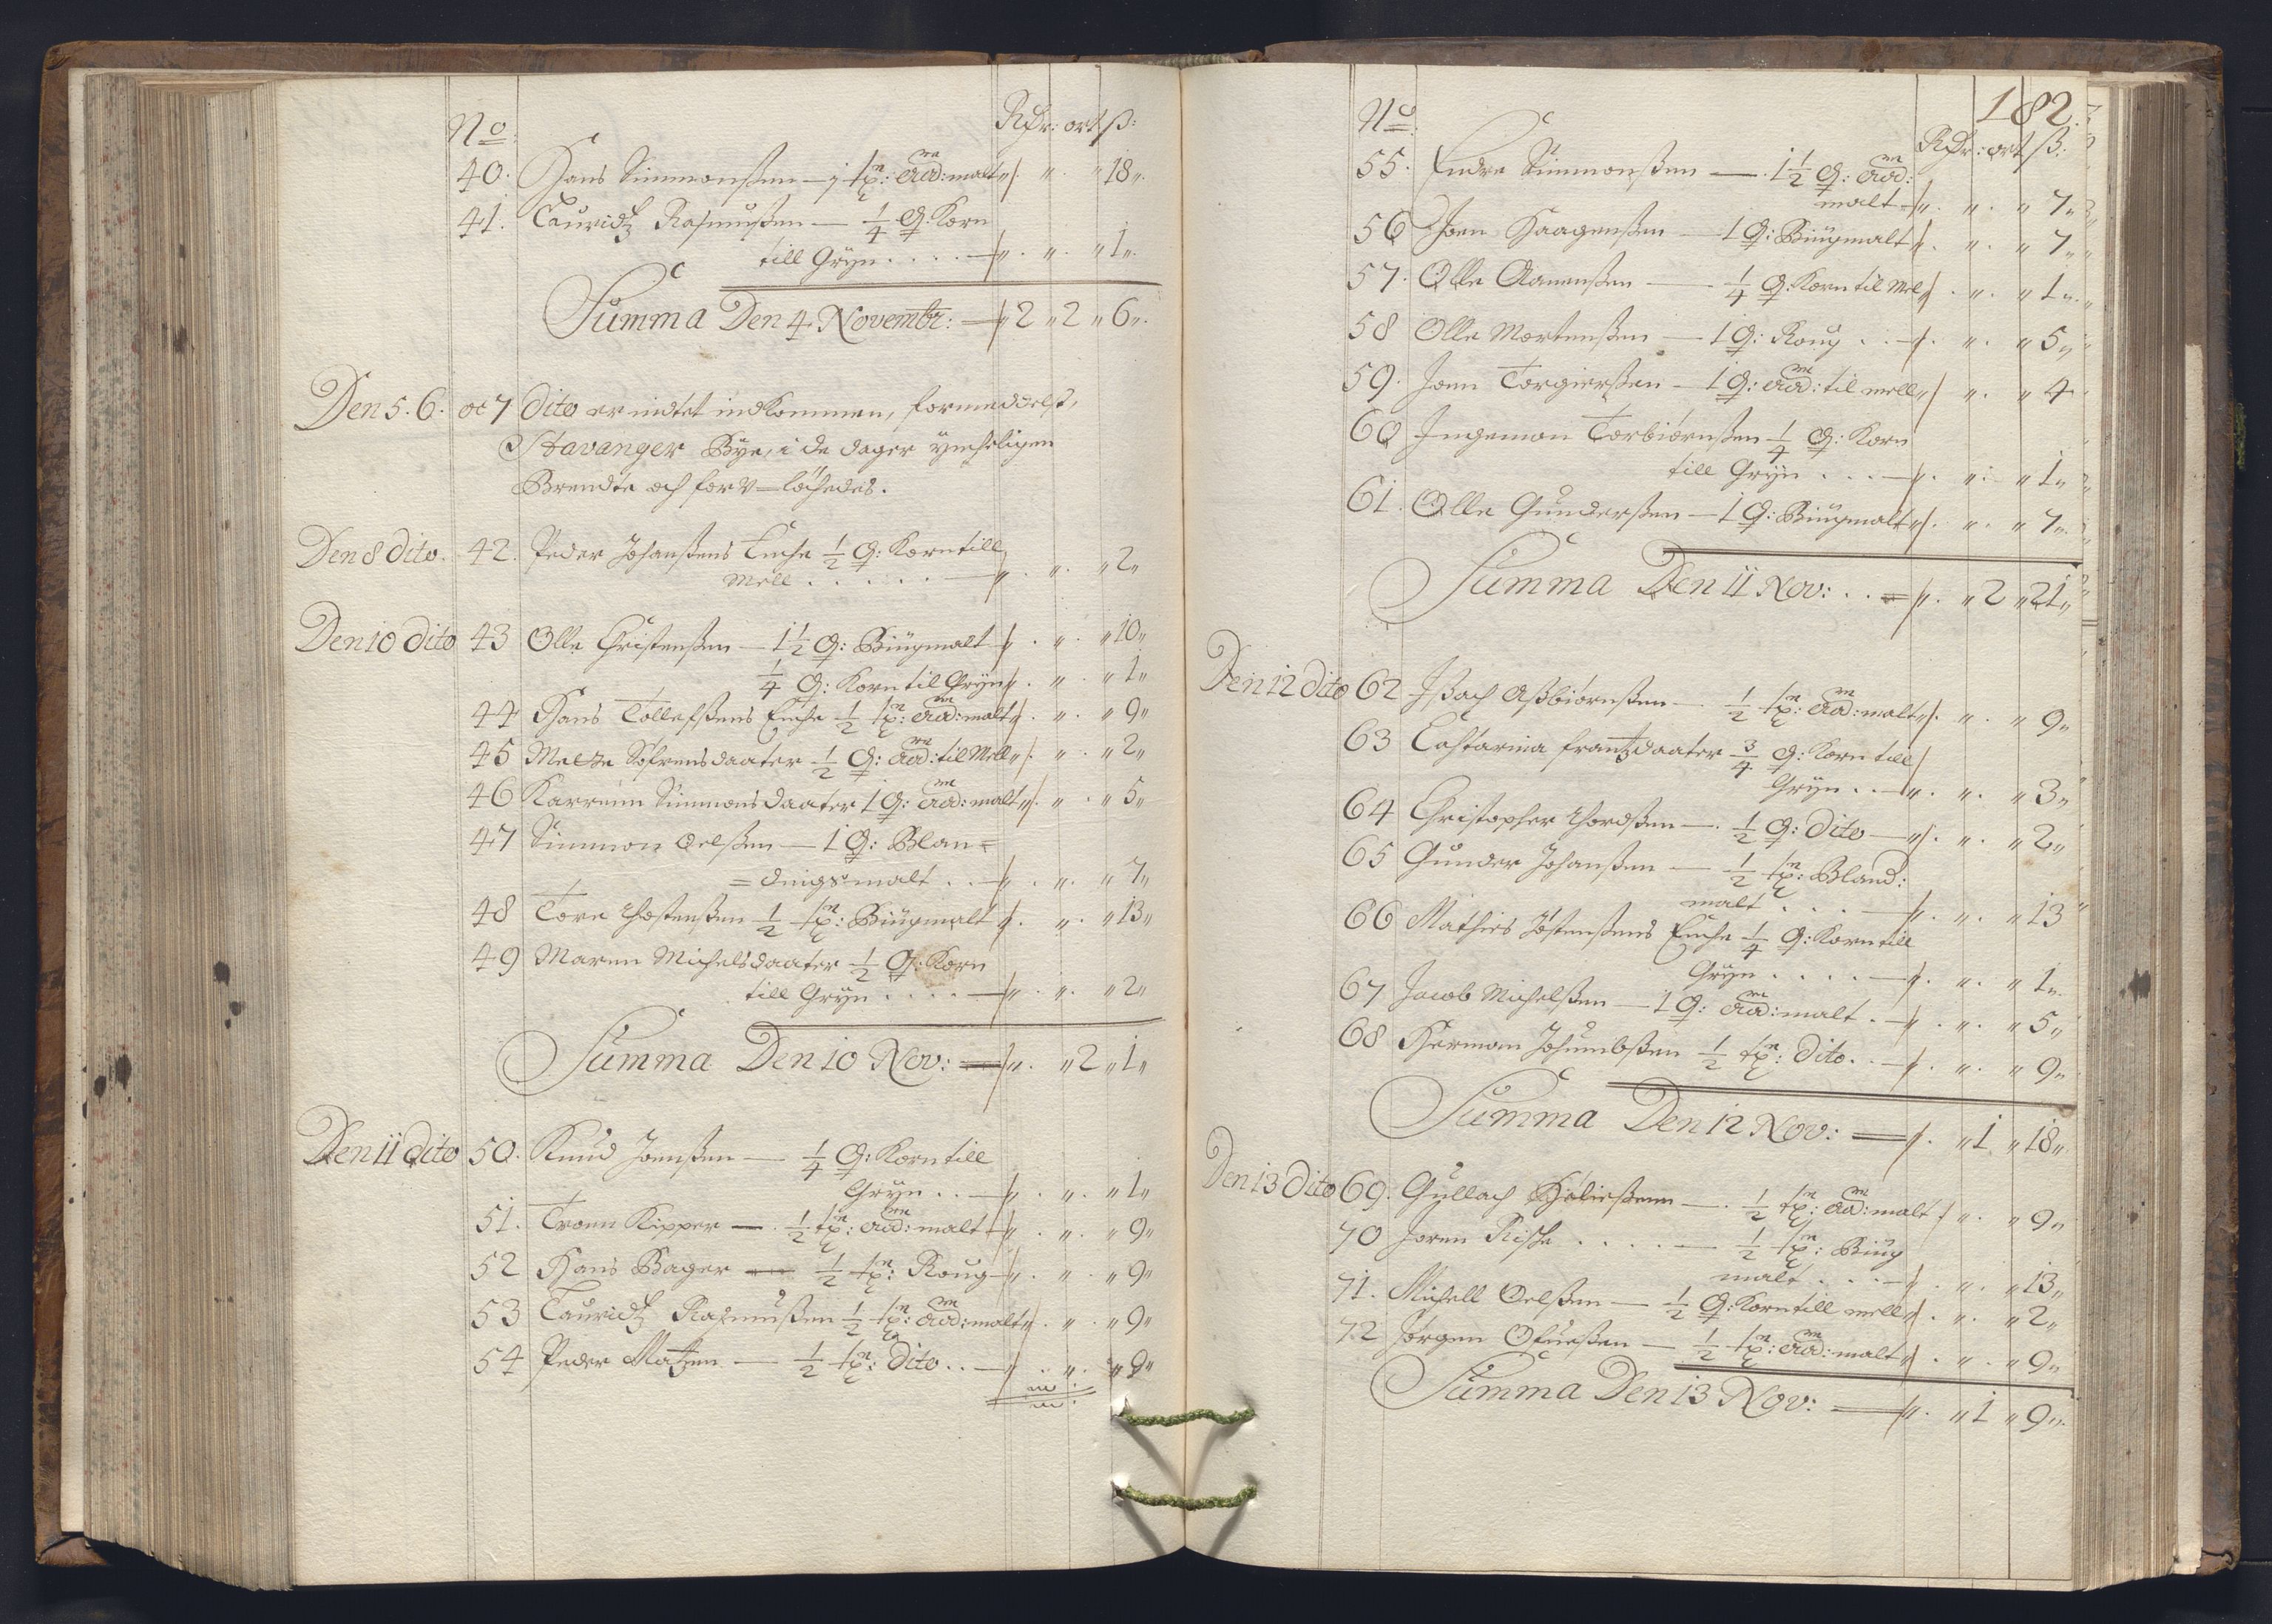 No: Rdr: ort ß:
40. Hans Simmonßen — 1 tø: aad: malt „ „ 18 „
41. Lauridtz Rasmußen — 1/4 q: Korn
till Gryn . . . . — „ „ 1 „
Summa Den 4 Novembr: — 2 „ 2 „ 6 „
Den 5. 6. oc 7 dito er indtet indkommen, formeddelst,
Stavanger Bye, i de dager
Brendte och for
Den 8 dito. 42. Peder Johanßens Enche 1/2 q: Korn till
Mell . . . . . . — „ „ 2 „
Den 10 dito 43 Olle Christenßen — 1 1/2 q: Biugmalt „ „ 10 „
1/4 q: Korn til Gryn „ „ 1 „
44 Hans Tollefßens Enche 1/2 tø: aad: malt „ „ 9 „
45 Mette Sofrensdaater 1/2 q: aad: til Mell „ „ 2 „
46 Karrenn Simmonsdaater 1 q: aad: malt „ „ 5 „
47 Simmon Oelßen — 1 q: Blan=
=dings malt . . — „ „ 7 „
48 Tore Thostenßen 1/2 tø: Biugmalt „ „ 13 „
49 Maren Michelsdaater 1/2 q: Korn
till Gryn . . . . — „ „ 2 „
Summa Den 10 Nov: — „ 2 „ 1 „
Den 11 dito 50. Knud Joenßen — 1/4 q: Korn till
Gryn . . — „ „ 1 „
51. Tronn Kipper — 1/2 tø: aad: malt „ „ 9 „
52 Hans Bager — 1/2 tø: Roug „ „ 9 „
53 Lauridtz Rasmußen 1/2 tø: aad: malt „ „ 9 „
54 Peder Matzen — 1/2 tø: dito . . — „ „ 9 „
182.
No: Rdr: ort ß:
55. Endre Simmonßen — 1 1/2 q: aad:
malt — „ „ 7 „
56 Joen Haagenßen — 1 q: Biugmalt „ „ 7 „
57. Olle Aanenßen — 1/4 q: Korn til Mel „ „ 1 „
58 Olle Mortenßen — 1 q: Roug . . — „ „ 5 „
59. Jonn Torgierßen — 1 q: aad: til mell „ „ 4
60 Ingemon Torbiornßen 1/4 q: Korn
till Gryn . . . — „ „ 1 „
61. Olle Gunderßen — 1 q: Biugmalt „ „ 7 „
Summa Den 11 Nov: . . „ 2 „ 21 „
Den 12 dito 62 Ißach Aßbiornßen — 1/2 tø: aad: malt „ „ 9 „
63 Cahtarina frantzdaater 3/4 q: Korn till
Gryn . . — „ „ 3 „
64 Christopher Thordßen — 1/2 q: dito — „ „ 2 „
65 Gunder Johanßen — 1/2 tø: Bland:
malt . . . — „ „ 13 „
66 Mathies Jostenßens Enche 1/4 q: Korn till
Gryn . . . . — „ „ 1 „
67 Jacob Michelßen — 1 q: aad: malt . — „ „ 5 „
68 Herman 1/2 tø: dito . . — „ „ 9 „
Summa Den 12 Nov: — „ 1 „ 18 „
Den 13 dito 69. Gullach — 1/2 tø: aad: malt „ „ 9 „
70 Joren . . . . — 1/2 tø: Biug
malt . . . — „ „ 13 „
71. Michell Oelßen — 1/2 q: Korn till mell „ „ 2 „
72 Jorgen — 1/2 tø: aad: malt „ „ 9 „
Summa Den 13 Nov: — „ 1 „ 9 „